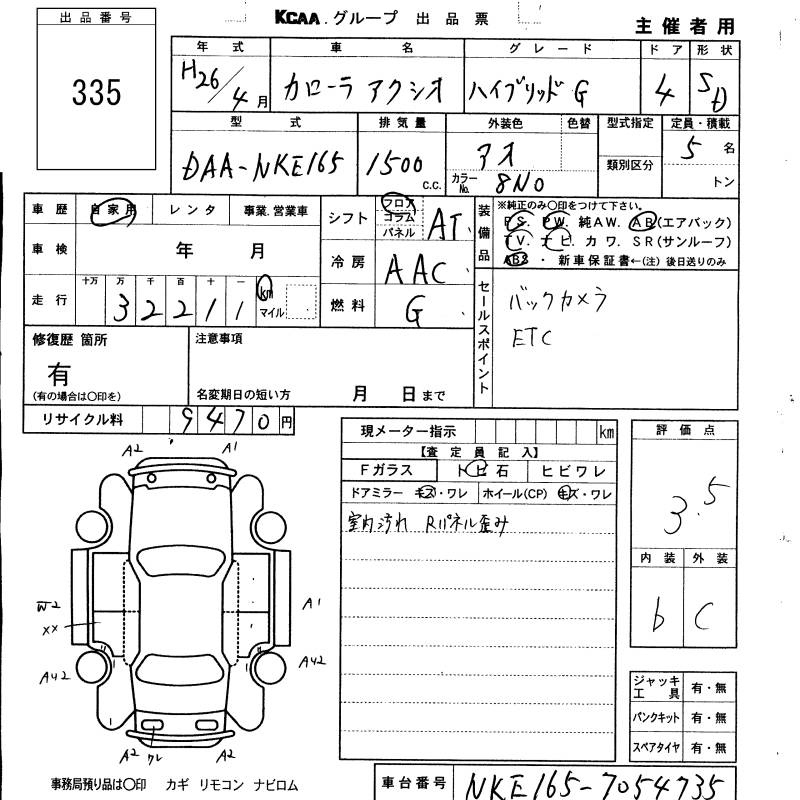 出品番号
335
KCAA.グループ 出品票
主催者用
年式 車名 グレード ドア 形状
H26/4月 カローラ アクシオ ハイブリッド G 4 SD
型式 排気量 外装色 色替 型式指定 定員・積載
DAA-NKE165 1500 c.c. アオ 5 名
カラーNo. 8N0 類別区分 トン
車歴 自家用 レンタ 事業.営業車
車検 年 月
走行 十万 万 千 百 十 一 km マイル
3 2 2 1 1
シフト フロア コラム パネル AT
冷房 AAC
燃料 G
装備品
※純正のみ〇印をつけて下さい。
PS. PW. 純AW. AB(エアバック)
TV. ナビ. カワ. SR(サンルーフ)
ABS ・ 新車保証書←(注) 後日送りのみ
セールスポイント
バックカメラ
ETC
修復歴 箇所
有
(有の場合は〇印を)
注意事項
名変期日の短い方 月 日まで
リサイクル料 9470円
現メーター指示 km
【査定員記入】
Fガラス トビ石 ヒビワレ
ドアミラー キズ・ワレ ホイール(CP) キズ・ワレ
室内汚れ Rパネル歪み
評価点
3.5
内装 外装
b C
A2 A1
W2
XX
A1
A42 A42
A2 ワレ A2
ジャッキ工具 有・無
パンクキット 有・無
スペアタイヤ 有・無
事務局預り品は〇印 カギ リモコン ナビロム
車台番号 NKE165-7054735